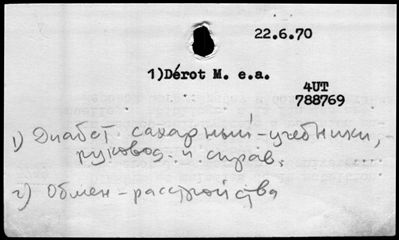 22.6.70
1)Dérot M. e.a.
4UT
788769
1) Диабет сахарный-учебники,
руковод. и справ.
2) Обмен-расстройства